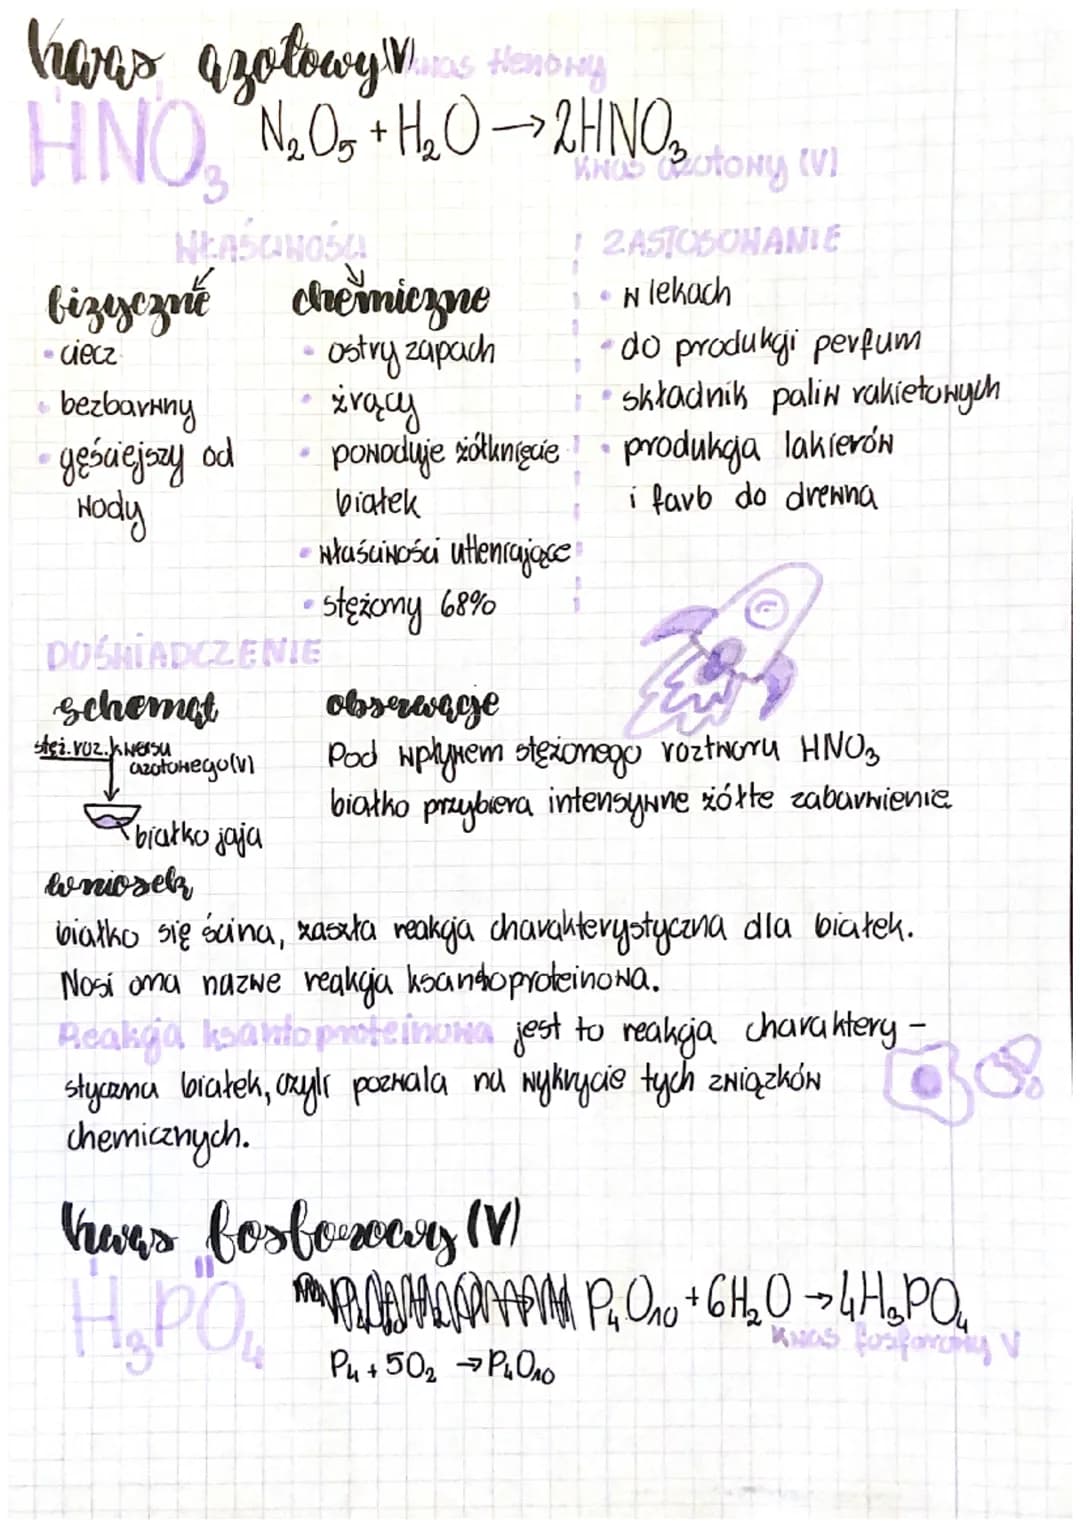 kwas azotowy (V) kwas tlenowy
HNO₃ N₂O₅ + H₂O → 2HNO₃
kwas azotowy (V)
WŁAŚCIWOŚCI
fizyczne
• ciecz
• bezbarwny
• gęściejszy od
wody
chemiczne
• ostry zapach
• żrący
• powoduje żółknięcie
białek
• właściwości utleniające
• stężony 68%
ZASTOSOWANIE
• w lekach
• do produkcji perfum
• składnik paliw rakietowych
• produkcja lakierów
i farb do drewna
DOŚWIADCZENIE
schemat
stęż. roz. kwasu
azotowego (V)
białko jaja
obserwacje
Pod wpływem stężonego roztworu HNO₃
białko przybiera intensywne żółte zabarwienie
wniosek
białko się ścina, zaszła reakcja charakterystyczna dla białek.
Nosi ona nazwe reakcja ksantoproteinowa.
Reakcja ksantoproteinowa jest to reakcja charaktery-
styczna białek, czyli pozwala na wykrycie tych związków
chemicznych.
kwas fosforowy (V)
H₃PO₄ P₄O₁₀ + 6H₂O → 4H₃PO₄
kwas fosforowy V
P₄ + 5O₂ → P₄O₁₀